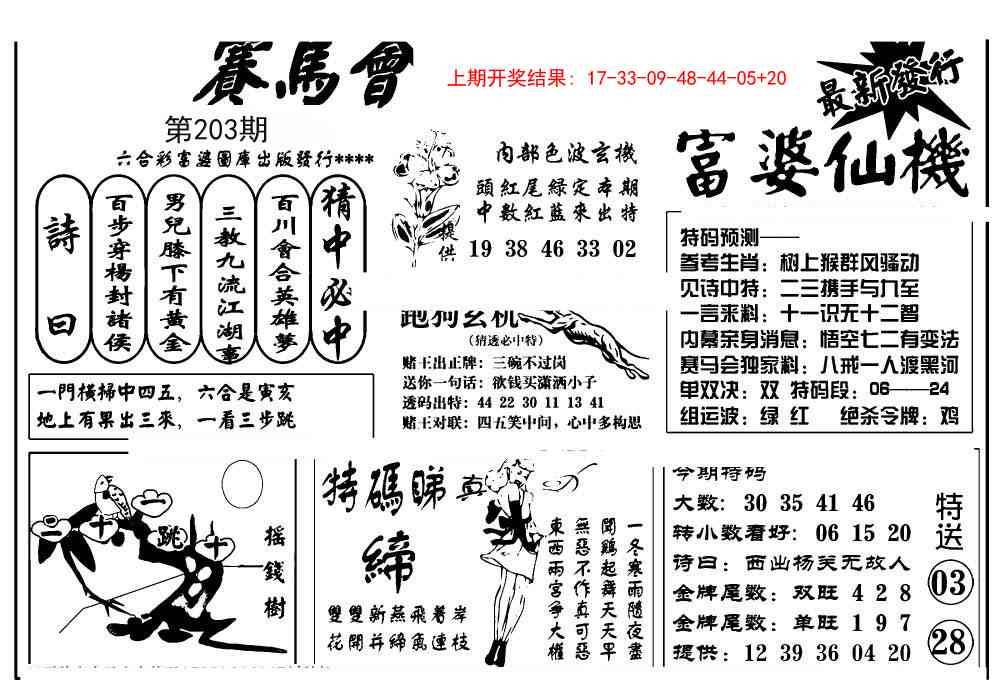 賽馬會
上期开奖结果：17-33-09-48-44-05+20
最新發行
第203期
六合彩富婆圖庫出版發行****
富婆仙機
內部色波玄機
頭紅尾綠定本期
中數紅藍來出特
提供
19 38 46 33 02
猜中必中
百川會合英雄夢
三教九流江湖事
男兒膝下有黃金
百步穿楊封諸侯
詩曰
一門橫掃中四五，六合是寅亥
地上有果出三來，一看三步跳
跑狗玄机
（猜透必中特）
赌王出正牌：三碗不过岗
送你一句话：欲钱买潇洒小子
透码出特：44 22 30 11 13 41
赌王对联：四五笑中间，心中多构思
特码预测——
参考生肖：树上猴群风骚动
见诗中特：二三携手与九至
一言来料：十一识无十二智
内幕亲身消息：悟空七二有变法
赛马会独家料：八戒一人渡黑河
单双决：双 特码段：06——24
组运波：绿 红 绝杀令牌：鸡
一
十
二
跳
十
搖錢樹
特碼睇真
締
雙雙新燕飛着岸
花開并締魚連枝
一冬寒雨隨夜盡
聞鷄起舞天天平
無惡不作真可惡
東西兩宮爭大權
今期特码
大数：30 35 41 46
转小数看好：06 15 20
诗曰：西出杨关无故人
金牌尾数：双旺 4 2 8
金牌尾数：单旺 1 9 7
提供：12 39 36 04 20
特送
03
28